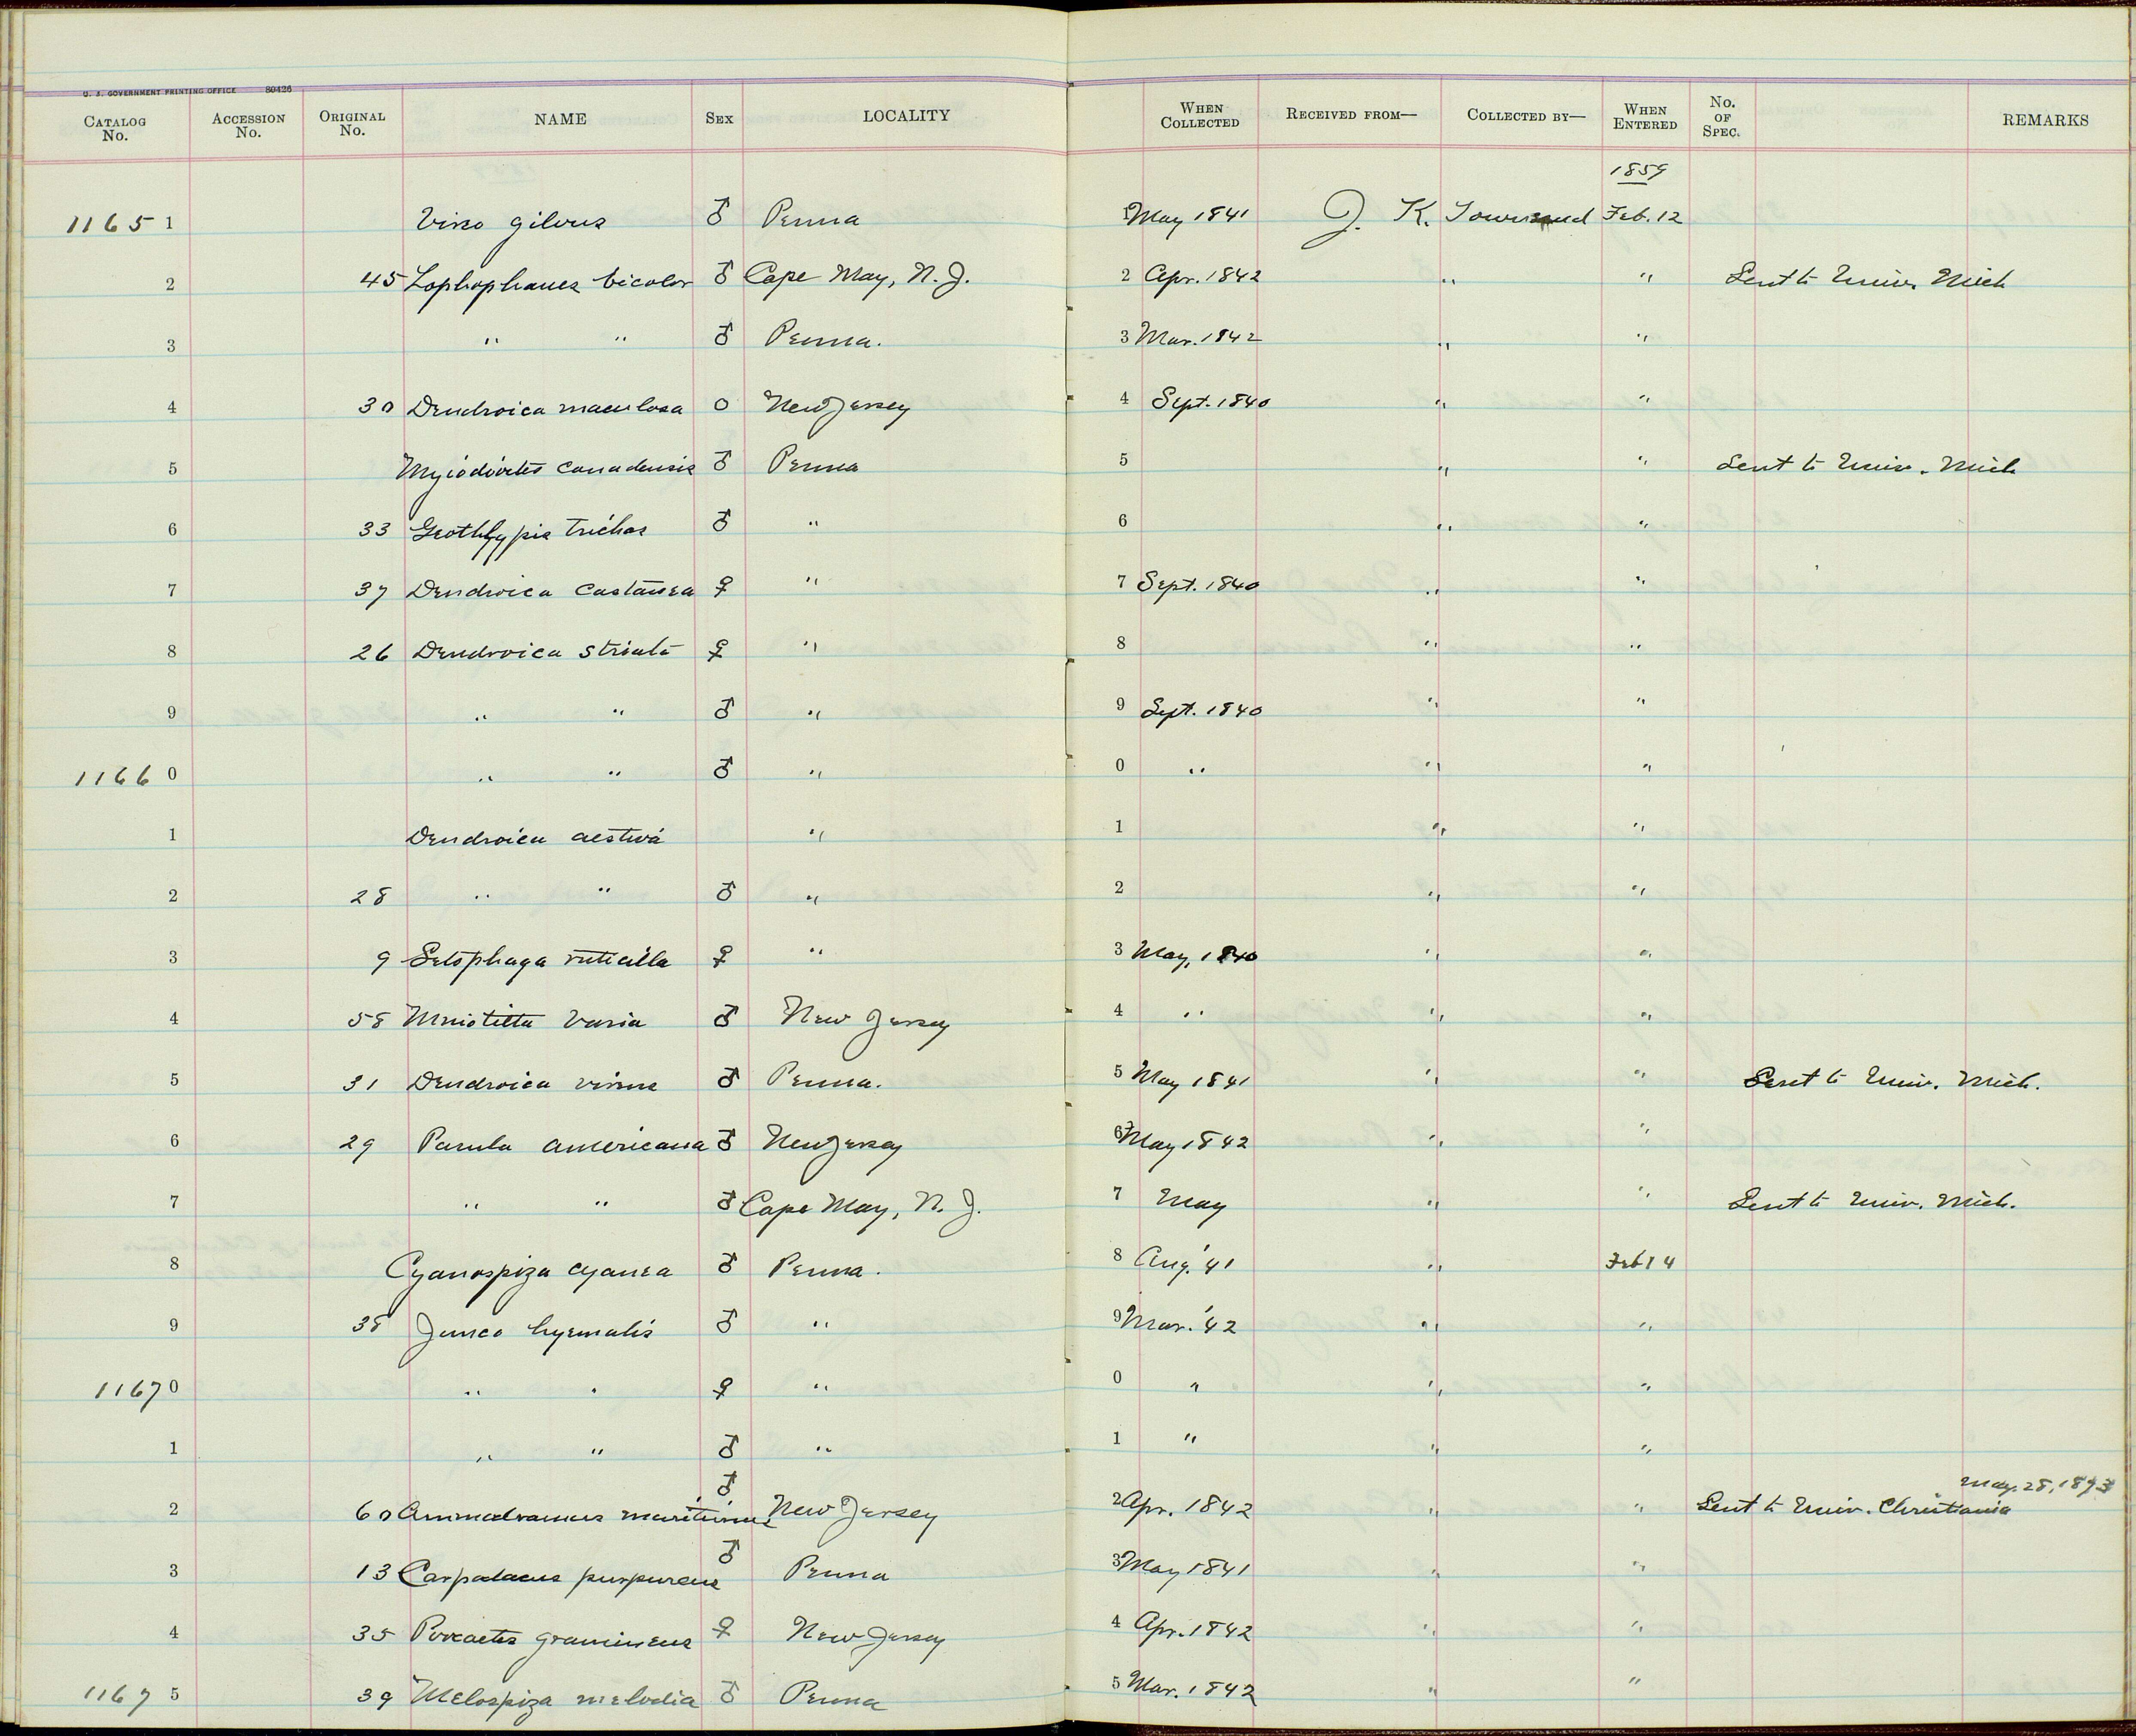 U. S. GOVERNMENT PRINTING OFFICE 80426
CATALOG No. ACCESSION No. ORIGINAL No. NAME SEX LOCALITY WHEN COLLECTED RECEIVED FROM— COLLECTED BY— WHEN ENTERED No. OF SPEC. REMARKS
1859
1165 1 Vireo gilvus ♂ Penna 1 May 1841 J. K. Townsend Feb. 12
2 45 Lophophanes bicolor ♂ Cape May, N. J. 2 Apr. 1842 " " Sent to Univ. Mich
3 " " ♂ Penna. 3 Mar. 1842 " "
4 30 Dendroica maculosa O New Jersey 4 Sept. 1840 " "
5 Myiodioctes canadensis ♂ Penna 5 " " Sent to Univ. Mich
6 33 Geothlypis trichas ♂ " 6 " "
7 37 Dendroica castanea ♀ " 7 Sept. 1840 " "
8 26 Dendroica striata ♀ " 8 " "
9 " " ♂ " 9 Sept. 1840 " "
1166 0 " " ♂ " 0 " " "
1 Dendroica aestiva " 1 " "
2 28 " " ♂ " 2 " "
3 9 Setophaga ruticilla ♀ " 3 May, 1840 " "
4 58 Mniotilta varia ♂ New Jersey 4 " " "
5 31 Dendroica virens ♂ Penna. 5 May 1841 " " Sent to Univ. Mich.
6 29 Parula americana ♂ New Jersey 6 May 1842 " "
7 " " ♂ Cape May, N. J. 7 May " " Sent to Univ. Mich.
8 Cyanospiza cyanea ♂ Penna. 8 Aug. '41 " Feb 14
9 38 Junco hyemalis ♂ " 9 Mar. '42 " "
1167 0 " " ♀ " 0 " " "
1 " " ♂ " 1 " " "
2 60 Ammodramus maritimus ♂ New Jersey 2 Apr. 1842 " " Sent to Univ. Christiania May. 28, 1873
3 13 Carpodacus purpureus ♂ Penna 3 May 1841 " "
4 35 Poocaetes gramineus ♀ New Jersey 4 Apr. 1842 " "
1167 5 39 Melospiza melodia ♂ Penna 5 Mar. 1842 " "